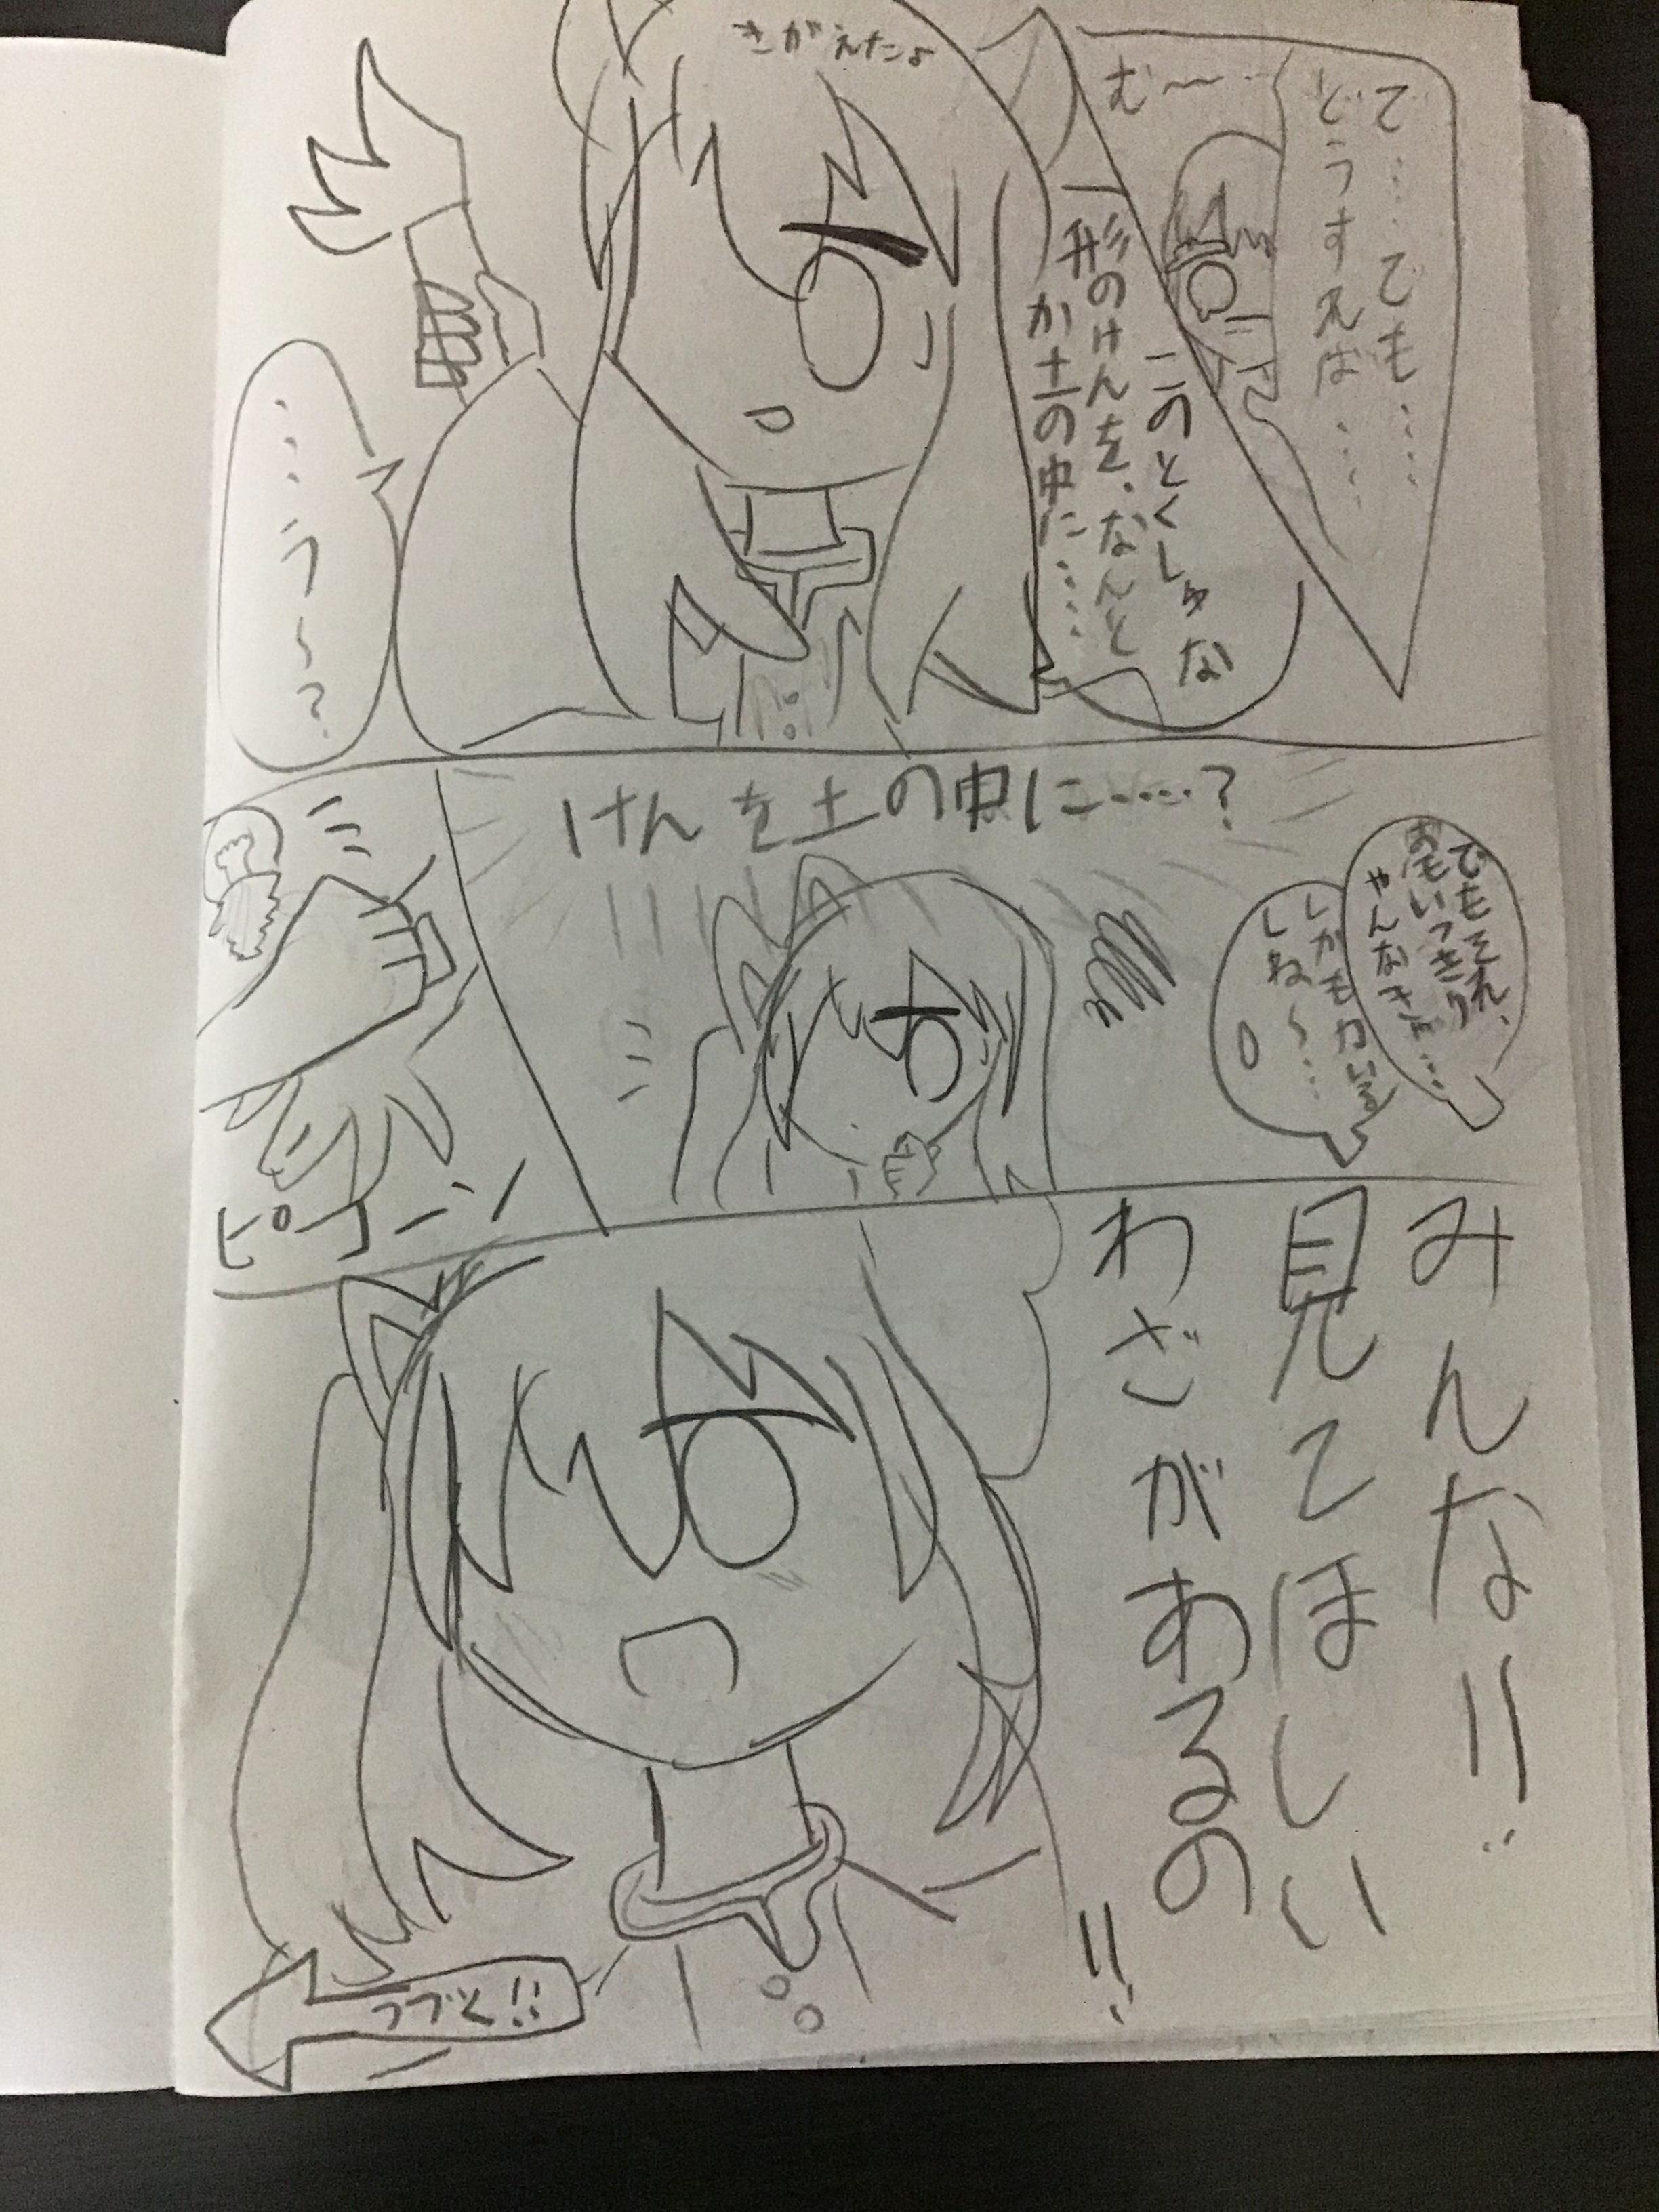 で……でも……
どうすえば……
む～…
きがえたよ
このとくしゅな
形のけんを、なんと
か土の中に……
…う～？
でもそれ、
おもいっきり
やんなきゃ…
しかも力いる
しね～…
けんを土の中に……？
ピコーン
みんな!!
見てほしい
わざがあるの
!!
つづく!!